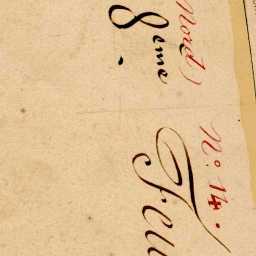 Nord)
8eme
N.º 14.
Feu